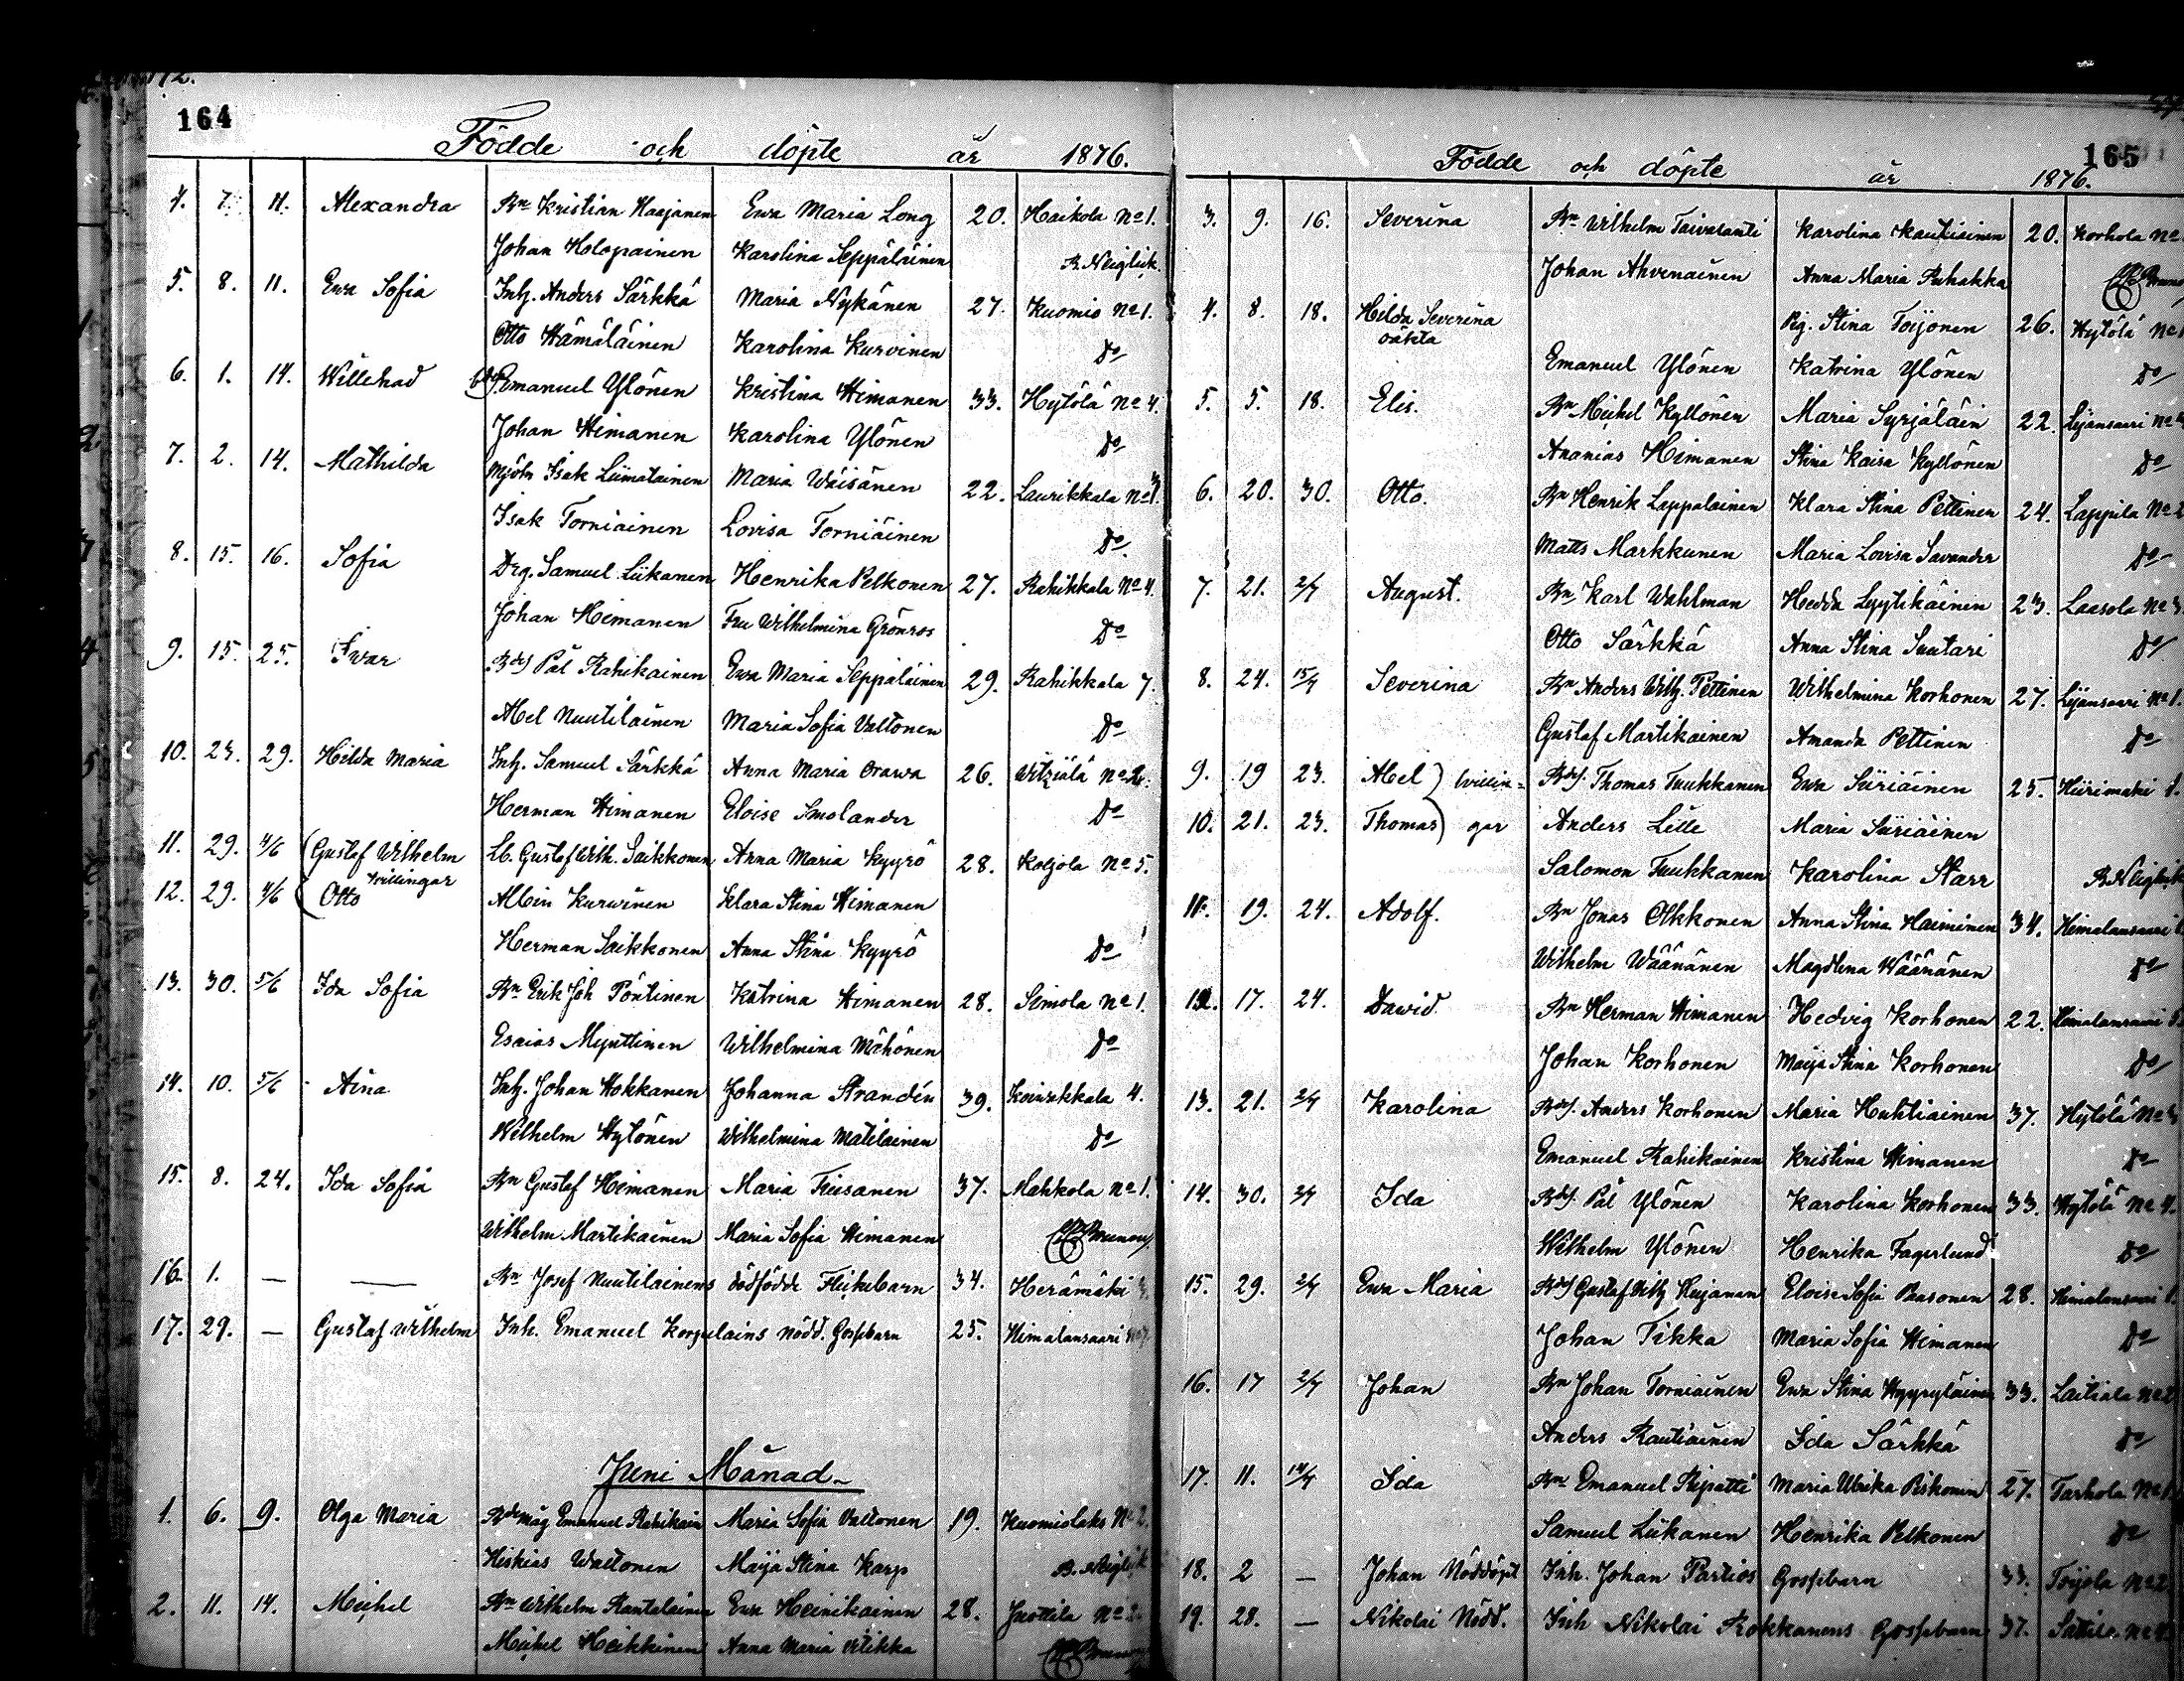 164
Födde och döpte år 1876.
4. 7. 11. Alexandra Bn Kristian Haajanen Ewa Maria Long 20. Haikola No 1.
Johan Holopainen Karolina Seppäläinen B. Neiglick.
5. 8. 11. Ewa Sofia Inh. Anders Särkkä Maria Nykänen 27. Kuomio No 1.
Otto Hämäläinen Karolina Kurvinen Do
6. 1. 14. Willehad Emanuel Ylönen Kristina Himanen 33. Hytölä No 4.
Johan Himanen Karolina Ylönen Do
7. 2. 14. Mathilda Mjöln Isak Liimatainen Maria Wäisänen 22. Laurikkala No 1.
Isak Torniainen Lovisa Torniäinen Do
8. 15. 16. Sofia Drg. Samuel Liikanen Henrika Pelkonen 27. Rahikkala No 4.
Johan Himanen Fru Wilhelmina Grönroos Do
9. 15. 25. Ivar Bdes Pål Rahikainen Ewa Maria Seppäläinen 29. Rahikkala 7.
Abel Nuutilainen Maria Sofia Valtonen Do
10. 23. 29. Hilda Maria Inh. Samuel Särkkä Anna Maria Orawa 26. Vitsiälä No 2.
Herman Himanen Eloise Smolander Do
11. 29. 4/6 Gustaf Wilhelm Lb. Gustaf Wilh. Saikkonen Anna Maria Kyyrö 28. Koljola No 5.
tvillingar
12. 29. 4/6 Otto Albin Kurwinen Klara Stina Himanen
Herman Saikkonen Anna Stina Kyyrö Do
13. 30. 5/6 Ida Sofia Bn Erik Joh Pöntinen Katrina Himanen 28. Simola No 1.
Esaias Mynttinen Wilhelmina Mähönen Do
14. 10. 5/6 Aina Inh. Johan Hokkanen Johanna Strandén 39. Koivakkala 4.
Wilhelm Hytönen Wilhelmina Matilainen Do
15. 8. 24. Ida Sofia Bn Gustaf Himanen Maria Tiusanen 37. Mahkola No 1.
Wilhelm Martikainen Maria Sofia Himanen
16. 1. — — Bn Josef Nuutilainens dödfödde Flickebarn 34. Herämäki
17. 29. — Gustaf Wilhelm Inh. Emanuel Korpelains nödd. Gossbarn 25. Himalansaari
Juni Månad
1. 6. 9. Olga Maria Bdemåg Emanuel Rahikain Maria Sofia Valtonen 19. Kuomiolaks No 2.
Hiskias Waltonen Maija Stina Karp B. Neiglick
2. 11. 14. Michel Bn Wilhelm Rantalainen Ewa Heinikainen 28. Juottila No 2.
Michel Heikkinen Anna Maria Vilikka
165
Födde och döpte år 1876.
3. 9. 16. Severina Bn Wilhelm Taivalanti Karolina Kautiainen 20. Korhola No
Johan Ahvenainen Anna Maria Puhakka
4. 8. 18. Hilda Severina Pig. Stina Toijonen 26. Hytölä No
oäkta
Emanuel Ylönen Katrina Ylönen Do
5. 5. 18. Elis. Bn Michel Kyllönen Maria Syrjäläin 22. Lijansaari No
Ananias Himanen Stina Kaisa Kyllönen Do
6. 20. 30. Otto. Bn Henrik Lappalainen Klara Stina Pettinen 24. Lappila No 2
Matts Markkunen Maria Lovisa Savander Do
7. 21. 2/7 August. Bn Karl Wahlman Hedda Lyytikäinen 23. Laasola No
Otto Särkkä Anna Stina Suutari Do
8. 24. 15/7 Severina Bn Anders Wilh. Pettinen Wilhelmina Korhonen 27. Lijansaari No 1.
Gustaf Martikainen Amanda Pettinen Do
9. 19 23. Abel tvillin= Bdes. Thomas Tuukkanen Ewa Siiriäinen 25. Hiirimäki
10. 21. 23. Thomas gar Anders Lille Maria Siiriäinen
Salomon Tuukkanen Karolina Starr B. Neiglick
11. 19. 24. Adolf. Bn Jonas Olkkonen Anna Stina Haiminen 34. Himalansaari
Wilhelm Wäänänen Magdlena Wäänänen Do
12. 17. 24. Dawid. Bn Herman Himanen Hedvig Korhonen 22. Himalansaari
Johan Korhonen Maija Stina Korhonen Do
13. 21. 2/7 Karolina Bdes. Anders Korhonen Maria Huhtiainen 37. Hytölä No
Emanuel Rahikainen Kristina Himanen Do
14. 30. 2/7 Ida Bdes. Pål Ylönen Karolina Korhonen 33. Hytölä No 4.
Wilhelm Ylönen Henrika Fagerlund Do
15. 29. 2/7 Ewa Maria Bdes Gustaf Wilh Heijanen Eloise Sofia Paasonen 28. Himalansaari
Johan Tikka Maria Sofia Himanen Do
16. 17 2/7 Johan Bn Johan Torniainen Ewa Stina Hyyryläinen 33. Laitiala No
Anders Rautiainen Ida Särkkä Do
17. 11. Ida Bn Emanuel Ripatti Maria Ulrika Piskonen 27. Tarhola No
Samuel Liikanen Henrika Pelkonen Do
18. 2 — Johan Nöddöpt Inh. Johan Partios Gossbarn 33. Toijola No 2
19. 28. — Nikolai Nödd. Inh Nikolai Rokkanens Gossbarn 37. Sattila No